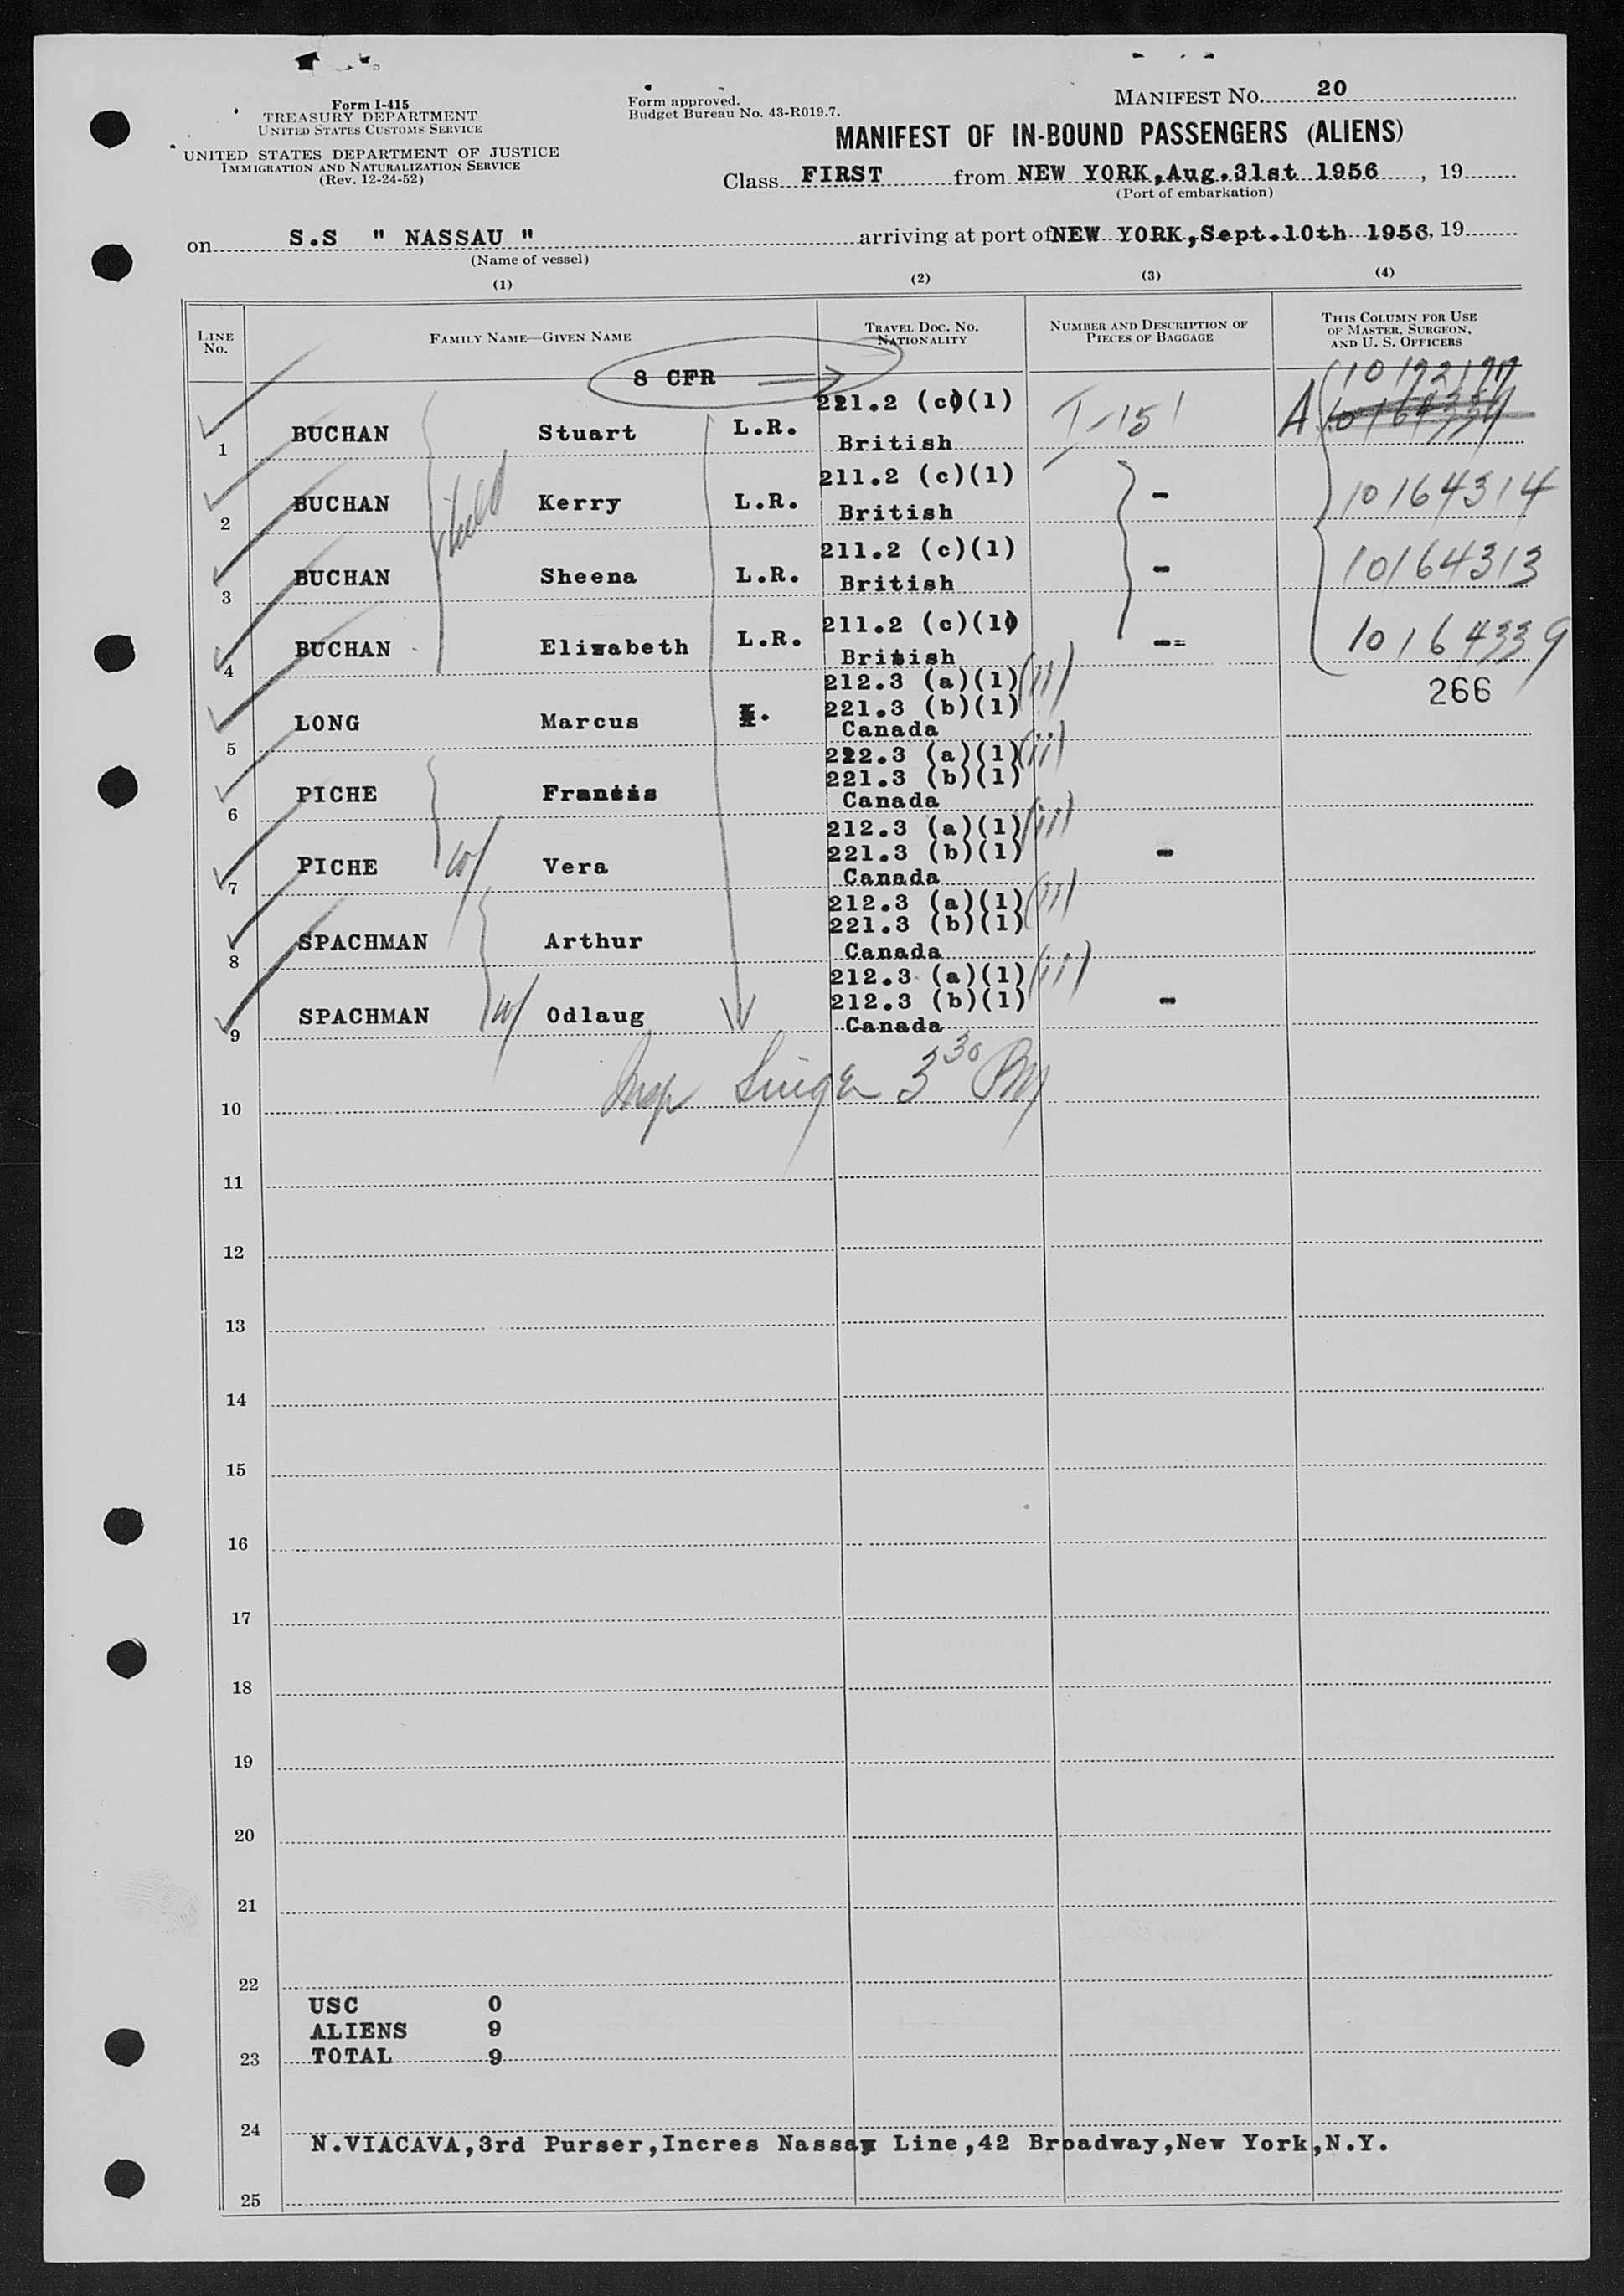 Form I-415
TREASURY DEPARTMENT
UNITED STATES CUSTOMS SERVICE
UNITED STATES DEPARTMENT OF JUSTICE
IMMIGRATION AND NATURALIZATION SERVICE
(Rev. 12-24-52)
Form approved.
Budget Bureau No. 43-R019.7.
MANIFEST NO. 20
MANIFEST OF IN-BOUND PASSENGERS (ALIENS)
Class FIRST from NEW YORK, Aug.31st 1956, 19
(Port of embarkation)
on S.S " NASSAU " arriving at port of NEW YORK, Sept.10th 1956, 19
(Name of vessel)
(1) (2) (3) (4)
LINE NO. FAMILY NAME—GIVEN NAME TRAVEL DOC. NO. NATIONALITY NUMBER AND DESCRIPTION OF PIECES OF BAGGAGE THIS COLUMN FOR USE OF MASTER, SURGEON, AND U. S. OFFICERS
8 CFR
221.2 (c)(1)
1 BUCHAN Stuart L.R. British I-151 A
211.2 (c)(1)
2 BUCHAN Kerry L.R. British - 10164314
211.2 (c)(1)
3 BUCHAN Sheena L.R. British - 10164313
211.2 (c)(1)
4 BUCHAN Elizabeth L.R. British -- 10164339
212.3 (a)(1)(ii) 266
221.3 (b)(1)
5 LONG Marcus Canada
212.3 (a)(1)(ii)
221.3 (b)(1)
6 PICHE Francis Canada
212.3 (a)(1)(ii)
221.3 (b)(1)
7 PICHE w/ Vera Canada -
212.3 (a)(1)(ii)
221.3 (b)(1)
8 SPACHMAN Arthur Canada
212.3 (a)(1)(ii)
212.3 (b)(1)
9 SPACHMAN w/ Odlaug Canada -
Insp Singer 3 30 PM
10
11
12
13
14
15
16
17
18
19
20
21
22
USC 0
ALIENS 9
23 TOTAL 9
24
N.VIACAVA,3rd Purser,Incres Nassau Line,42 Broadway,New York,N.Y.
25